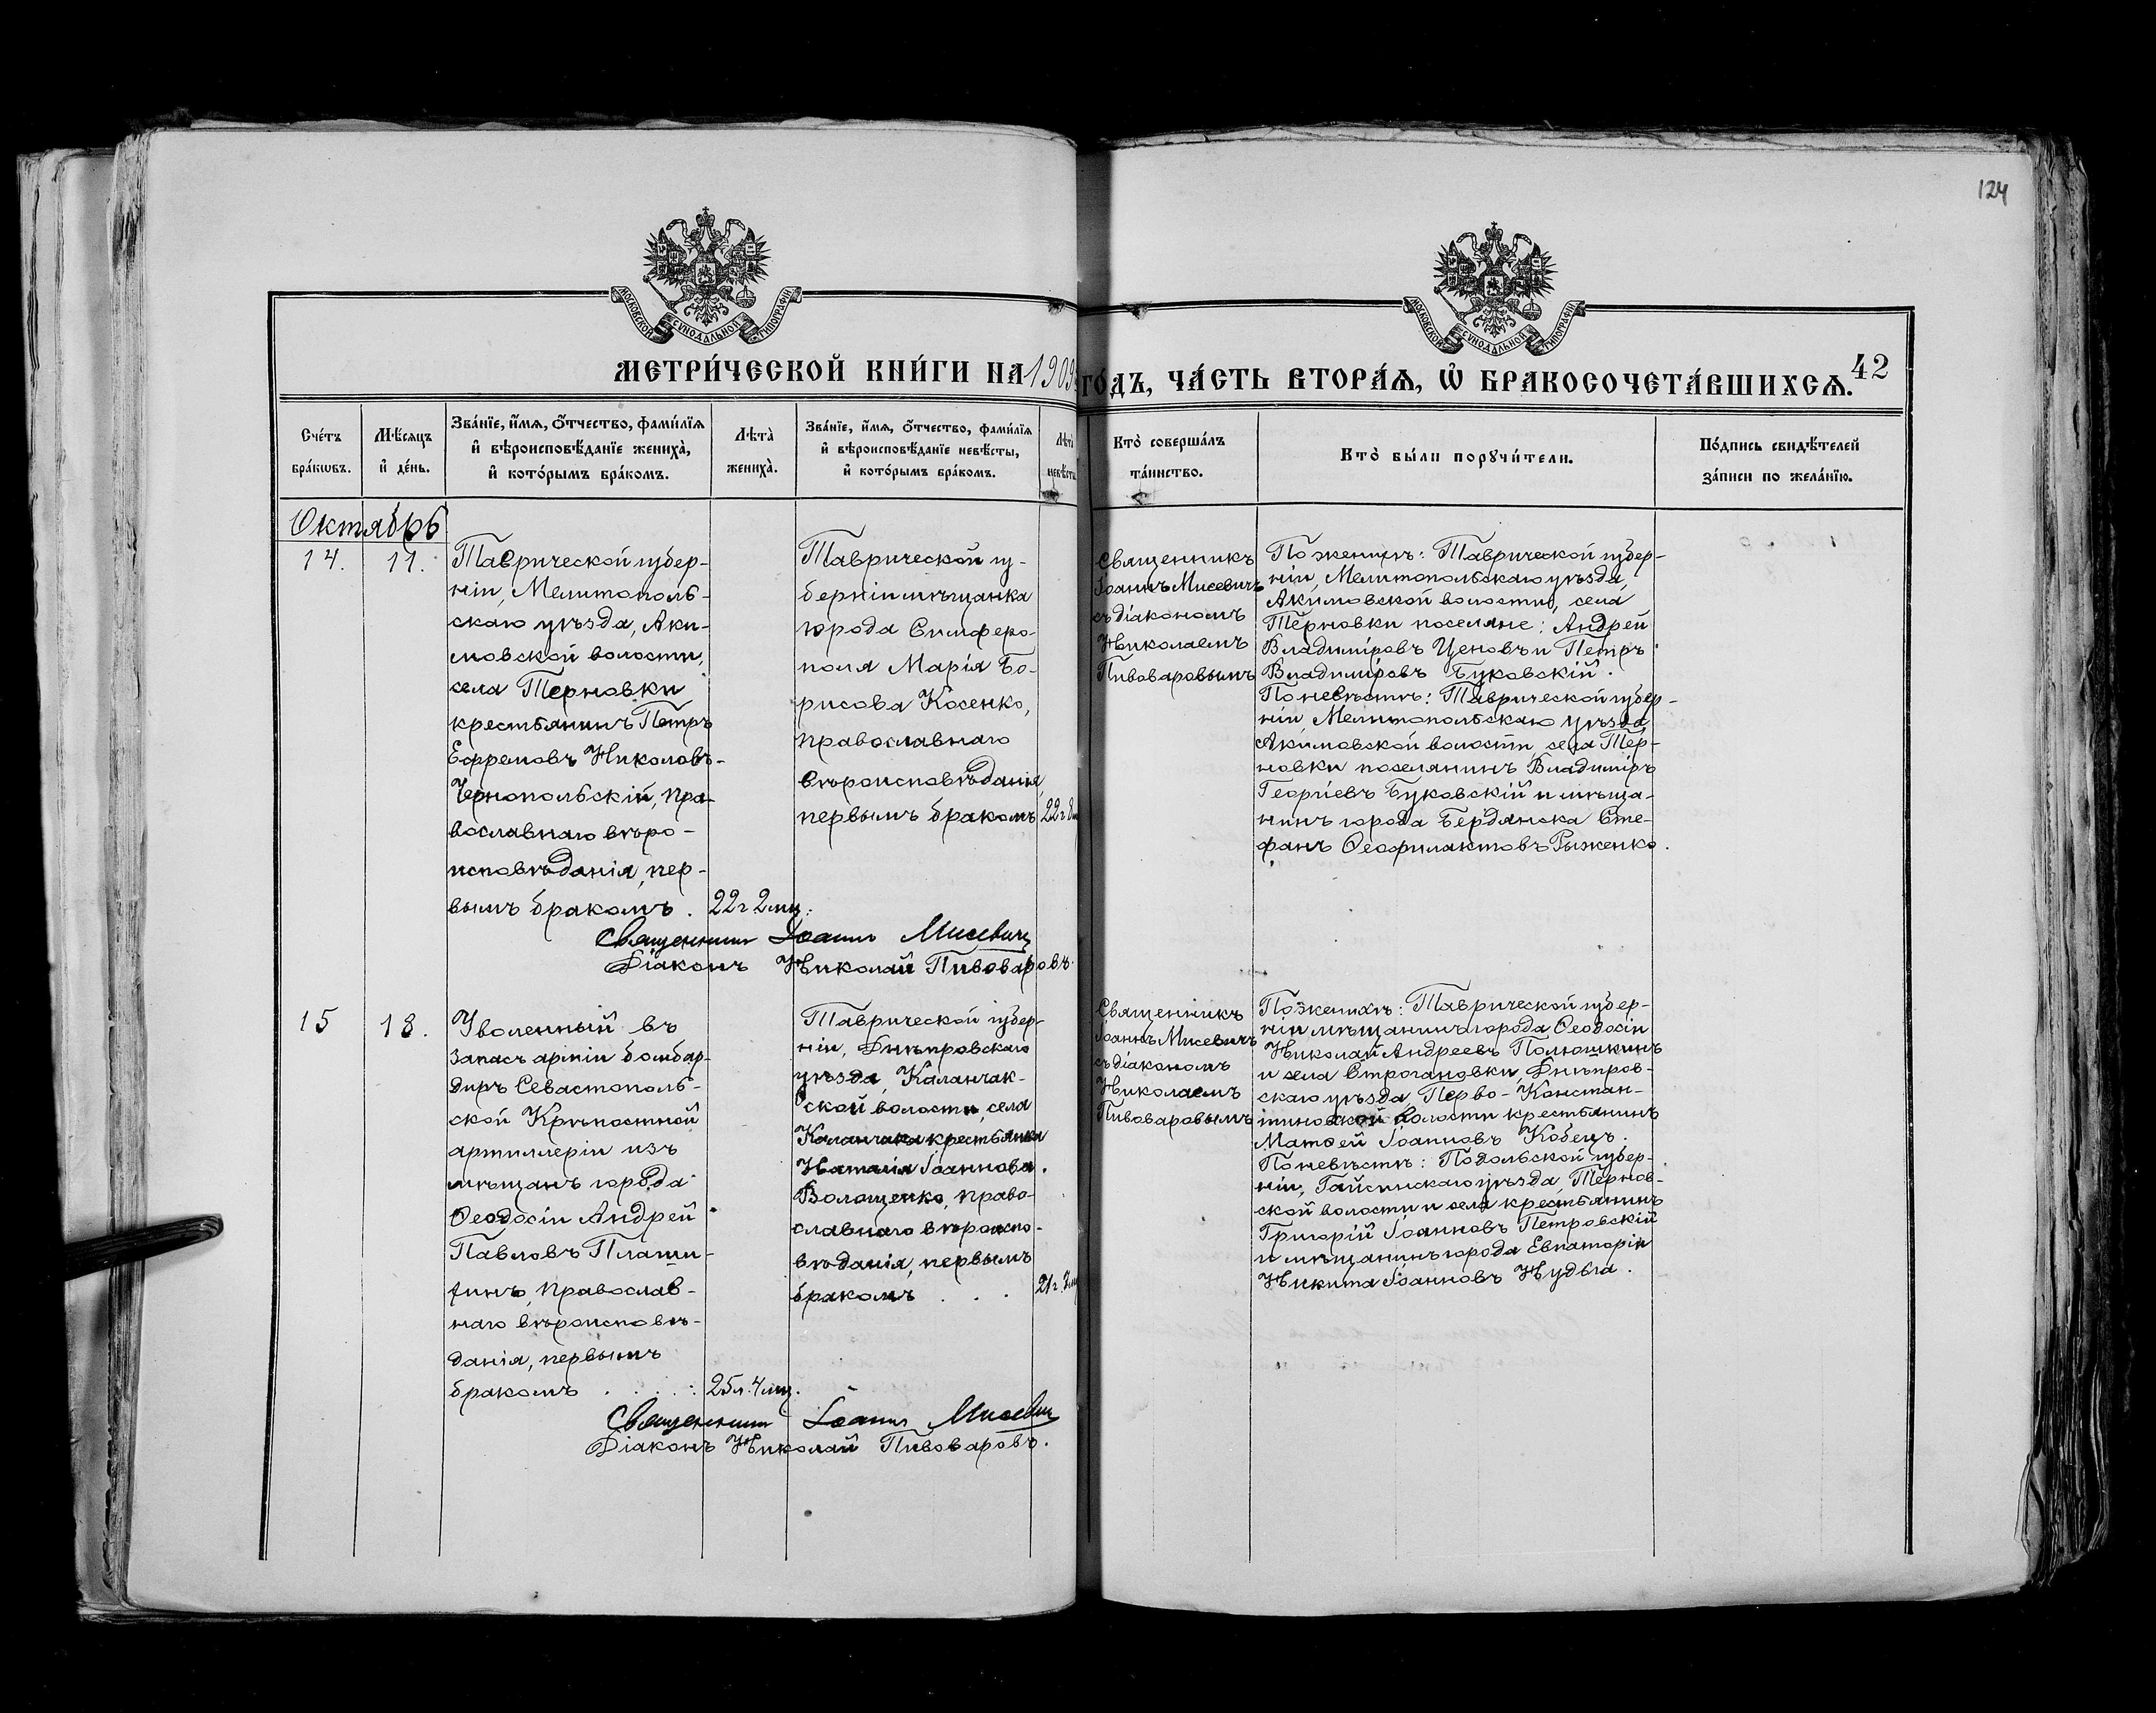 124
МОСКОВСКОЙ СУНОДАЛЬНОЙ ТИПОГРАФІИ
МОСКОВСКОЙ СУНОДАЛЬНОЙ ТИПОГРАФІИ
42
МЕТРИ́ЧЕСКОЙ КНИ́ГИ НА 1909 ГО́ДЪ, ЧА́СТЬ ВТОРА́Ѧ, Ѽ БРАКОСОЧЕТА́ВШИХСѦ.
Сче́тъ
бра́кѡвъ.
Мѣ́сѧцъ
и҆ де́нь.
Зва́нїе, и҆́мѧ, ѻ҆́тчество, фами́лїѧ
и҆ вѣроисповѣ́данїе жениха̀,
и҆ кото́рымъ бра́комъ.
Лѣта̀
жениха̀.
Зва́нїе, и҆́мѧ, ѻ҆́тчество, фами́лїѧ
и҆ вѣроисповѣ́данїе невѣ́сты,
и҆ кото́рымъ бра́комъ.
Лѣта̀
невѣ́сты
Кто̀ соверша́лъ
та́инство.
Кто̀ бы́ли порꙋчи́тели.
По́дпись свидѣ́телей
за́писи по жела́нїю.
Октябрь
14.
11.
Таврической губер-
ніи, Мелитополь-
скаго уѣзда, Аки-
мовской волости,
села Терновки
крестьянинъ Петръ
Ефремовъ Николовъ-
Чернопольскій, пра-
вославнаго вѣро-
исповѣданія, пер-
вымъ бракомъ.
22 г 2 мц.
Таврической гу-
берніи мѣщанка
города Симферо-
поля Марія Бо-
рисова Косенко,
православнаго
вѣроисповѣданія,
первымъ бракомъ
22 г
Священникъ Іоаннъ Мисевичъ
Діаконъ Николай Пивоваровъ.
Священникъ
Іоаннъ Мисевичъ
съ діакономъ
Николаемъ
Пивоваровымъ
По женихѣ: Таврической губер-
ніи, Мелитопольскаго уѣзда,
Акимовской волости, села
Терновки поселяне: Андрей
Владиміровъ Ценовъ и Петръ
Владиміровъ Буковскій.
По невѣстѣ: Таврической губер-
ніи Мелитопольскаго уѣзда
Акимовской волости, села Тер-
новки поселянинъ Владиміръ
Георгіевъ Буковскій и мѣща-
нинъ города Бердянска Сте-
фанъ Ѳеофилактовъ Рыженко.
15
18.
Уволенный въ
запасъ арміи бомбар-
диръ Севастополь-
ской Крѣпостной
артиллеріи изъ
мѣщанъ города
Ѳеодосіи Андрей
Павловъ
православ-
наго вѣроисповѣ-
данія, первымъ
бракомъ . . . .
25 л. 4 мц.
Таврической губер-
ніи, Днѣпровскаго
уѣзда, Каланчак-
ской волости, села
Каланчака крестьянка
Наталія Іоаннова
Волощенко, право-
славнаго вѣроиспо-
вѣданія, первымъ
бракомъ . . .
21 г.
Священникъ Іоаннъ Мисевичъ
Діаконъ Николай Пивоваровъ.
Священникъ
Іоаннъ Мисевичъ
съ діакономъ
Николаемъ
Пивоваровымъ
По женихѣ: Таврической губер-
ніи мѣщанинъ города Ѳеодосіи
Николай Андреевъ Полюшкинъ
и села Строгановки, Днѣпров-
скаго уѣзда, Перво-Констан-
тиновской волости крестьянинъ
Матѳей Іоанновъ Кобецъ.
По невѣстѣ: Подольской губер-
ніи, Гайсинскаго уѣзда, Тернов-
ской волости и села крестьянинъ
Григорій Іоанновъ Петровскій
и мѣщанинъ города Евпаторіи
Никита Іоанновъ Нудьга.